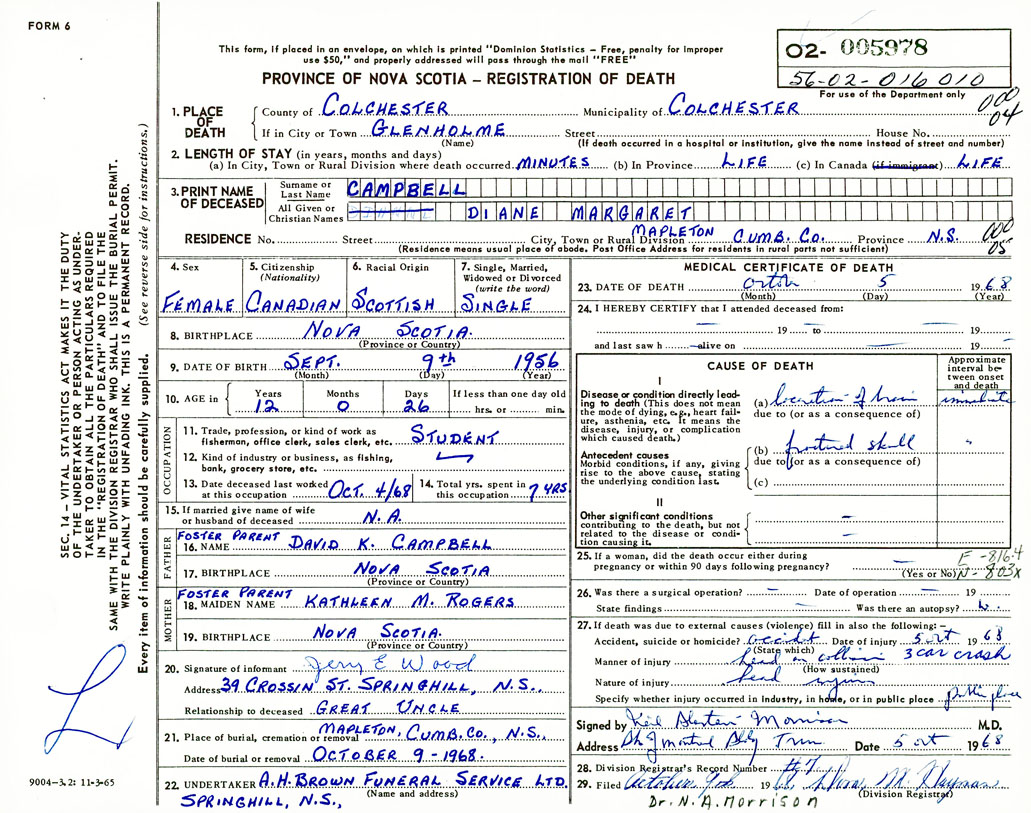 FORM 6
This form, if placed in an envelope, on which is printed "Dominion Statistics – Free, penalty for improper
use $50," and properly addressed will pass through the mail "FREE"
PROVINCE OF NOVA SCOTIA – REGISTRATION OF DEATH
02- 005978
56-02-016010
For use of the Department only
000
04
SEC. 14 – VITAL STATISTICS ACT MAKES IT THE DUTY
OF THE UNDERTAKER OR PERSON ACTING AS UNDER-
TAKER TO OBTAIN ALL THE PARTICULARS REQUIRED
IN THE "REGISTRATION OF DEATH" AND TO FILE THE
SAME WITH THE DIVISION REGISTRAR WHO SHALL ISSUE THE BURIAL PERMIT.
WRITE PLAINLY WITH UNFADING INK. THIS IS A PERMANENT RECORD.
Every item of information should be carefully supplied. (See reverse side for instructions.)
1. PLACE OF DEATH County of COLCHESTER Municipality of COLCHESTER
If in City or Town GLENHOLME Street House No.
(Name) (If death occurred in a hospital or institution, give the name instead of street and number)
2. LENGTH OF STAY (in years, months and days)
(a) In City, Town or Rural Division where death occurred MINUTES (b) In Province LIFE (c) In Canada (if immigrant) LIFE
3. PRINT NAME OF DECEASED Surname or Last Name CAMPBELL
All Given or Christian Names DIANE MARGARET
RESIDENCE No. Street City, Town or Rural Division MAPLETON CUMB. CO. Province N.S.
000
05
(Residence means usual place of abode. Post Office Address for residents in rural parts not sufficient)
4. Sex 5. Citizenship (Nationality) 6. Racial Origin 7. Single, Married, Widowed or Divorced (write the word)
FEMALE CANADIAN SCOTTISH SINGLE
8. BIRTHPLACE NOVA SCOTIA.
(Province or Country)
9. DATE OF BIRTH SEPT. 9th 1956
(Month) (Day) (Year)
10. AGE in Years Months Days If less than one day old
12 0 26 hrs. or min.
OCCUPATION
11. Trade, profession, or kind of work as fisherman, office clerk, sales clerk, etc. STUDENT
12. Kind of industry or business, as fishing, bank, grocery store, etc.
13. Date deceased last worked at this occupation OCT. 4/68 14. Total yrs. spent in this occupation 7 YRS
15. If married give name of wife or husband of deceased N.A.
FATHER
FOSTER PARENT
16. NAME DAVID K. CAMPBELL
17. BIRTHPLACE NOVA SCOTIA
(Province or Country)
MOTHER
FOSTER PARENT
18. MAIDEN NAME KATHLEEN M. ROGERS
19. BIRTHPLACE NOVA SCOTIA.
(Province or Country)
20. Signature of informant Jerry E Wood
Address 39 CROSSIN ST. SPRINGHILL, N.S..
Relationship to deceased GREAT UNCLE
21. Place of burial, cremation or removal MAPLETON, CUMB. CO., N.S.,
Date of burial or removal OCTOBER 9-1968.
22. UNDERTAKER A.H. BROWN FUNERAL SERVICE LTD.
(Name and address)
SPRINGHILL, N.S.,
9004–3.2: 11-3-65
MEDICAL CERTIFICATE OF DEATH
23. DATE OF DEATH 5 1968
(Month) (Day) (Year)
24. I HEREBY CERTIFY that I attended deceased from:
19 to 19
and last saw h alive on 19
CAUSE OF DEATH
Approximate interval between onset and death
I
Disease or condition directly leading to death (This does not mean the mode of dying, e.g., heart failure, asthenia, etc. It means the disease, injury, or complication which caused death.)
(a) of brain immediate
due to (or as a consequence of)
Antecedent causes
Morbid conditions, if any, giving rise to the above cause, stating the underlying condition last.
(b) fractured skull "
due to (or as a consequence of)
(c)
II
Other significant conditions contributing to the death, but not related to the disease or condition causing it.
25. If a woman, did the death occur either during pregnancy or within 90 days following pregnancy?
(Yes or No)
E-816.4
N-803X
26. Was there a surgical operation? Date of operation 19
State findings Was there an autopsy?
27. If death was due to external causes (violence) fill in also the following:–
Accident, suicide or homicide? accident Date of injury 5 oct 1968
(State which)
Manner of injury head on collision 3 car crash
(How sustained)
Nature of injury head
Specify whether injury occurred in Industry, in home, or in public place public place
Signed by Morrison M.D.
Address Bldg Date 5 oct 1968
28. Division Registrar's Record Number #7
29. Filed October 9th 1968
(Division Registrar)
Dr. N. A. Morrison